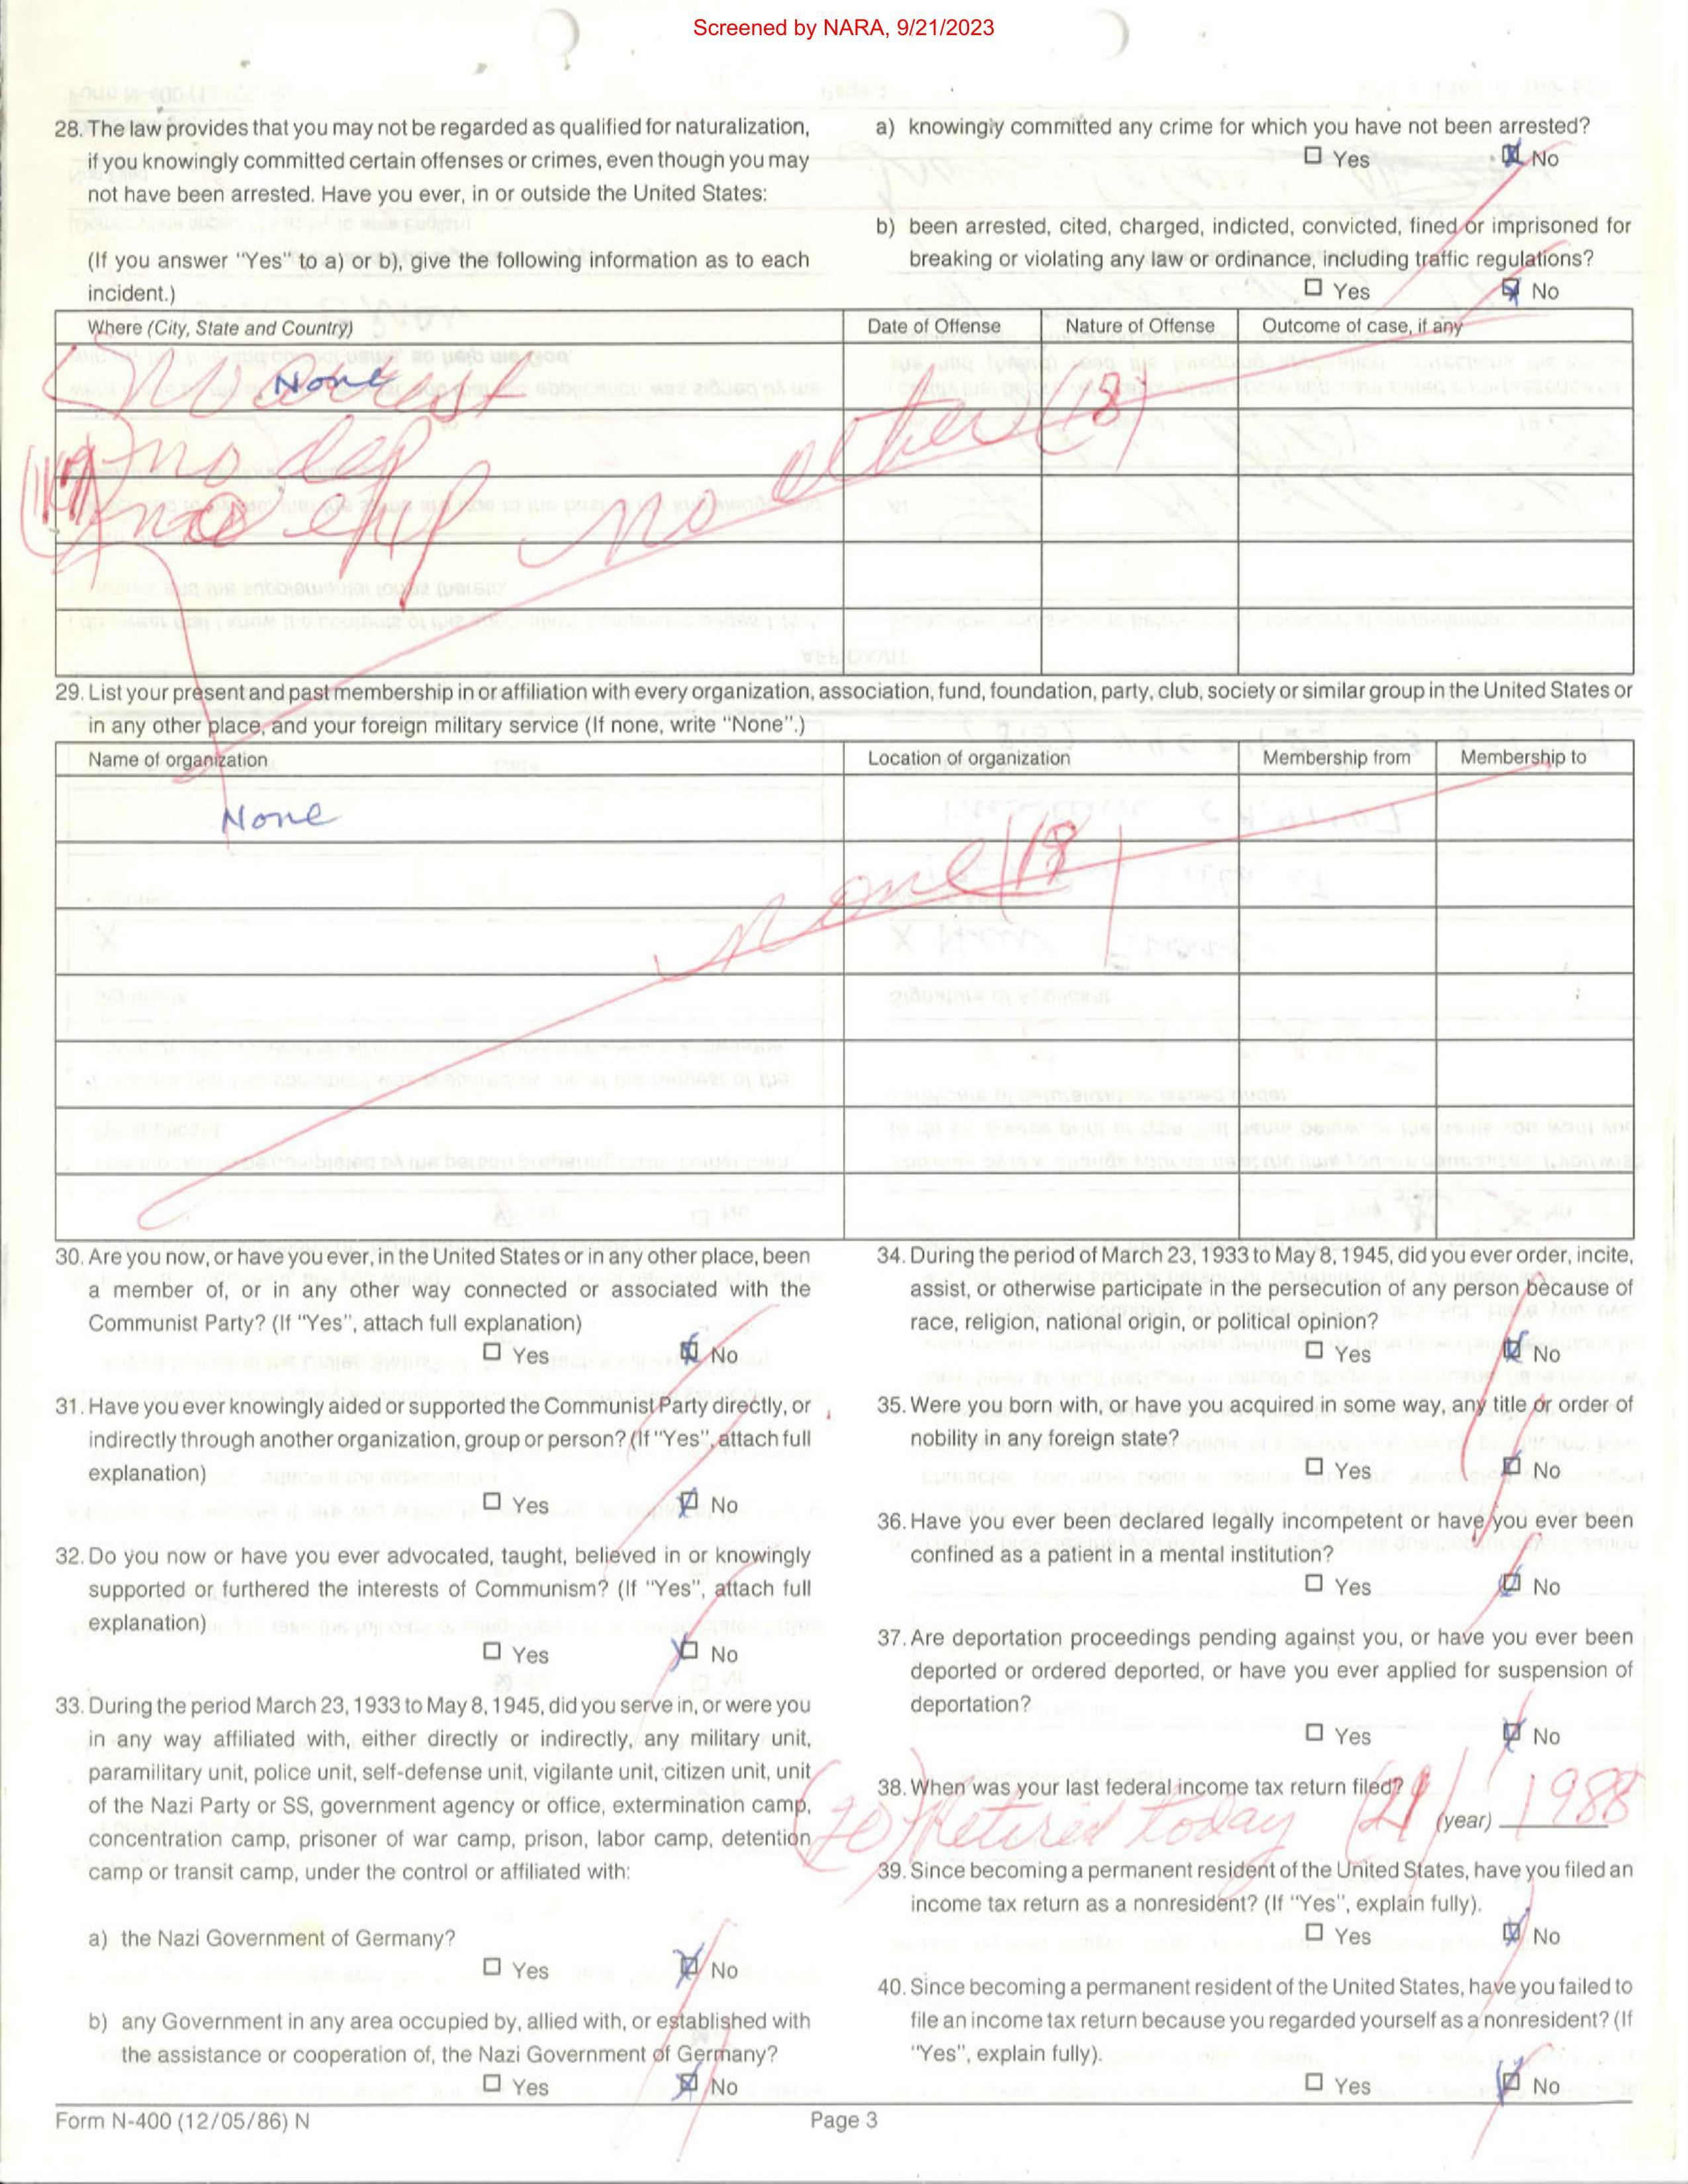 Screened by NARA, 9/21/2023
28. The law provides that you may not be regarded as qualified for naturalization,
if you knowingly committed certain offenses or crimes, even though you may
not have been arrested. Have you ever, in or outside the United States:
(If you answer "Yes" to a) or b), give the following information as to each
incident.)
a) knowingly committed any crime for which you have not been arrested?
☐ Yes ☒ No
b) been arrested, cited, charged, indicted, convicted, fined or imprisoned for
breaking or violating any law or ordinance, including traffic regulations?
☐ Yes ☒ No
Where (City, State and Country) Date of Offense Nature of Offense Outcome of case, if any
None
no dep
no other (18)
29. List your present and past membership in or affiliation with every organization, association, fund, foundation, party, club, society or similar group in the United States or
in any other place, and your foreign military service (If none, write "None".)
Name of organization Location of organization Membership from Membership to
None
none (19
30. Are you now, or have you ever, in the United States or in any other place, been
a member of, or in any other way connected or associated with the
Communist Party? (If "Yes", attach full explanation)
☐ Yes ☒ No
31. Have you ever knowingly aided or supported the Communist Party directly, or
indirectly through another organization, group or person? (If "Yes", attach full
explanation)
☐ Yes ☒ No
32. Do you now or have you ever advocated, taught, believed in or knowingly
supported or furthered the interests of Communism? (If "Yes", attach full
explanation)
☐ Yes ☒ No
33. During the period March 23, 1933 to May 8, 1945, did you serve in, or were you
in any way affiliated with, either directly or indirectly, any military unit,
paramilitary unit, police unit, self-defense unit, vigilante unit, citizen unit, unit
of the Nazi Party or SS, government agency or office, extermination camp,
concentration camp, prisoner of war camp, prison, labor camp, detention
camp or transit camp, under the control or affiliated with:
a) the Nazi Government of Germany?
☐ Yes ☒ No
b) any Government in any area occupied by, allied with, or established with
the assistance or cooperation of, the Nazi Government of Germany?
☐ Yes ☒ No
34. During the period of March 23, 1933 to May 8, 1945, did you ever order, incite,
assist, or otherwise participate in the persecution of any person because of
race, religion, national origin, or political opinion?
☐ Yes ☒ No
35. Were you born with, or have you acquired in some way, any title or order of
nobility in any foreign state?
☐ Yes ☒ No
36. Have you ever been declared legally incompetent or have you ever been
confined as a patient in a mental institution?
☐ Yes ☒ No
37. Are deportation proceedings pending against you, or have you ever been
deported or ordered deported, or have you ever applied for suspension of
deportation?
☐ Yes ☒ No
38. When was your last federal income tax return filed?
(20) Retired today (21) (year) 1988
39. Since becoming a permanent resident of the United States, have you filed an
income tax return as a nonresident? (If "Yes", explain fully).
☐ Yes ☒ No
40. Since becoming a permanent resident of the United States, have you failed to
file an income tax return because you regarded yourself as a nonresident? (If
"Yes", explain fully).
☐ Yes ☒ No
Form N-400 (12/05/86) N Page 3